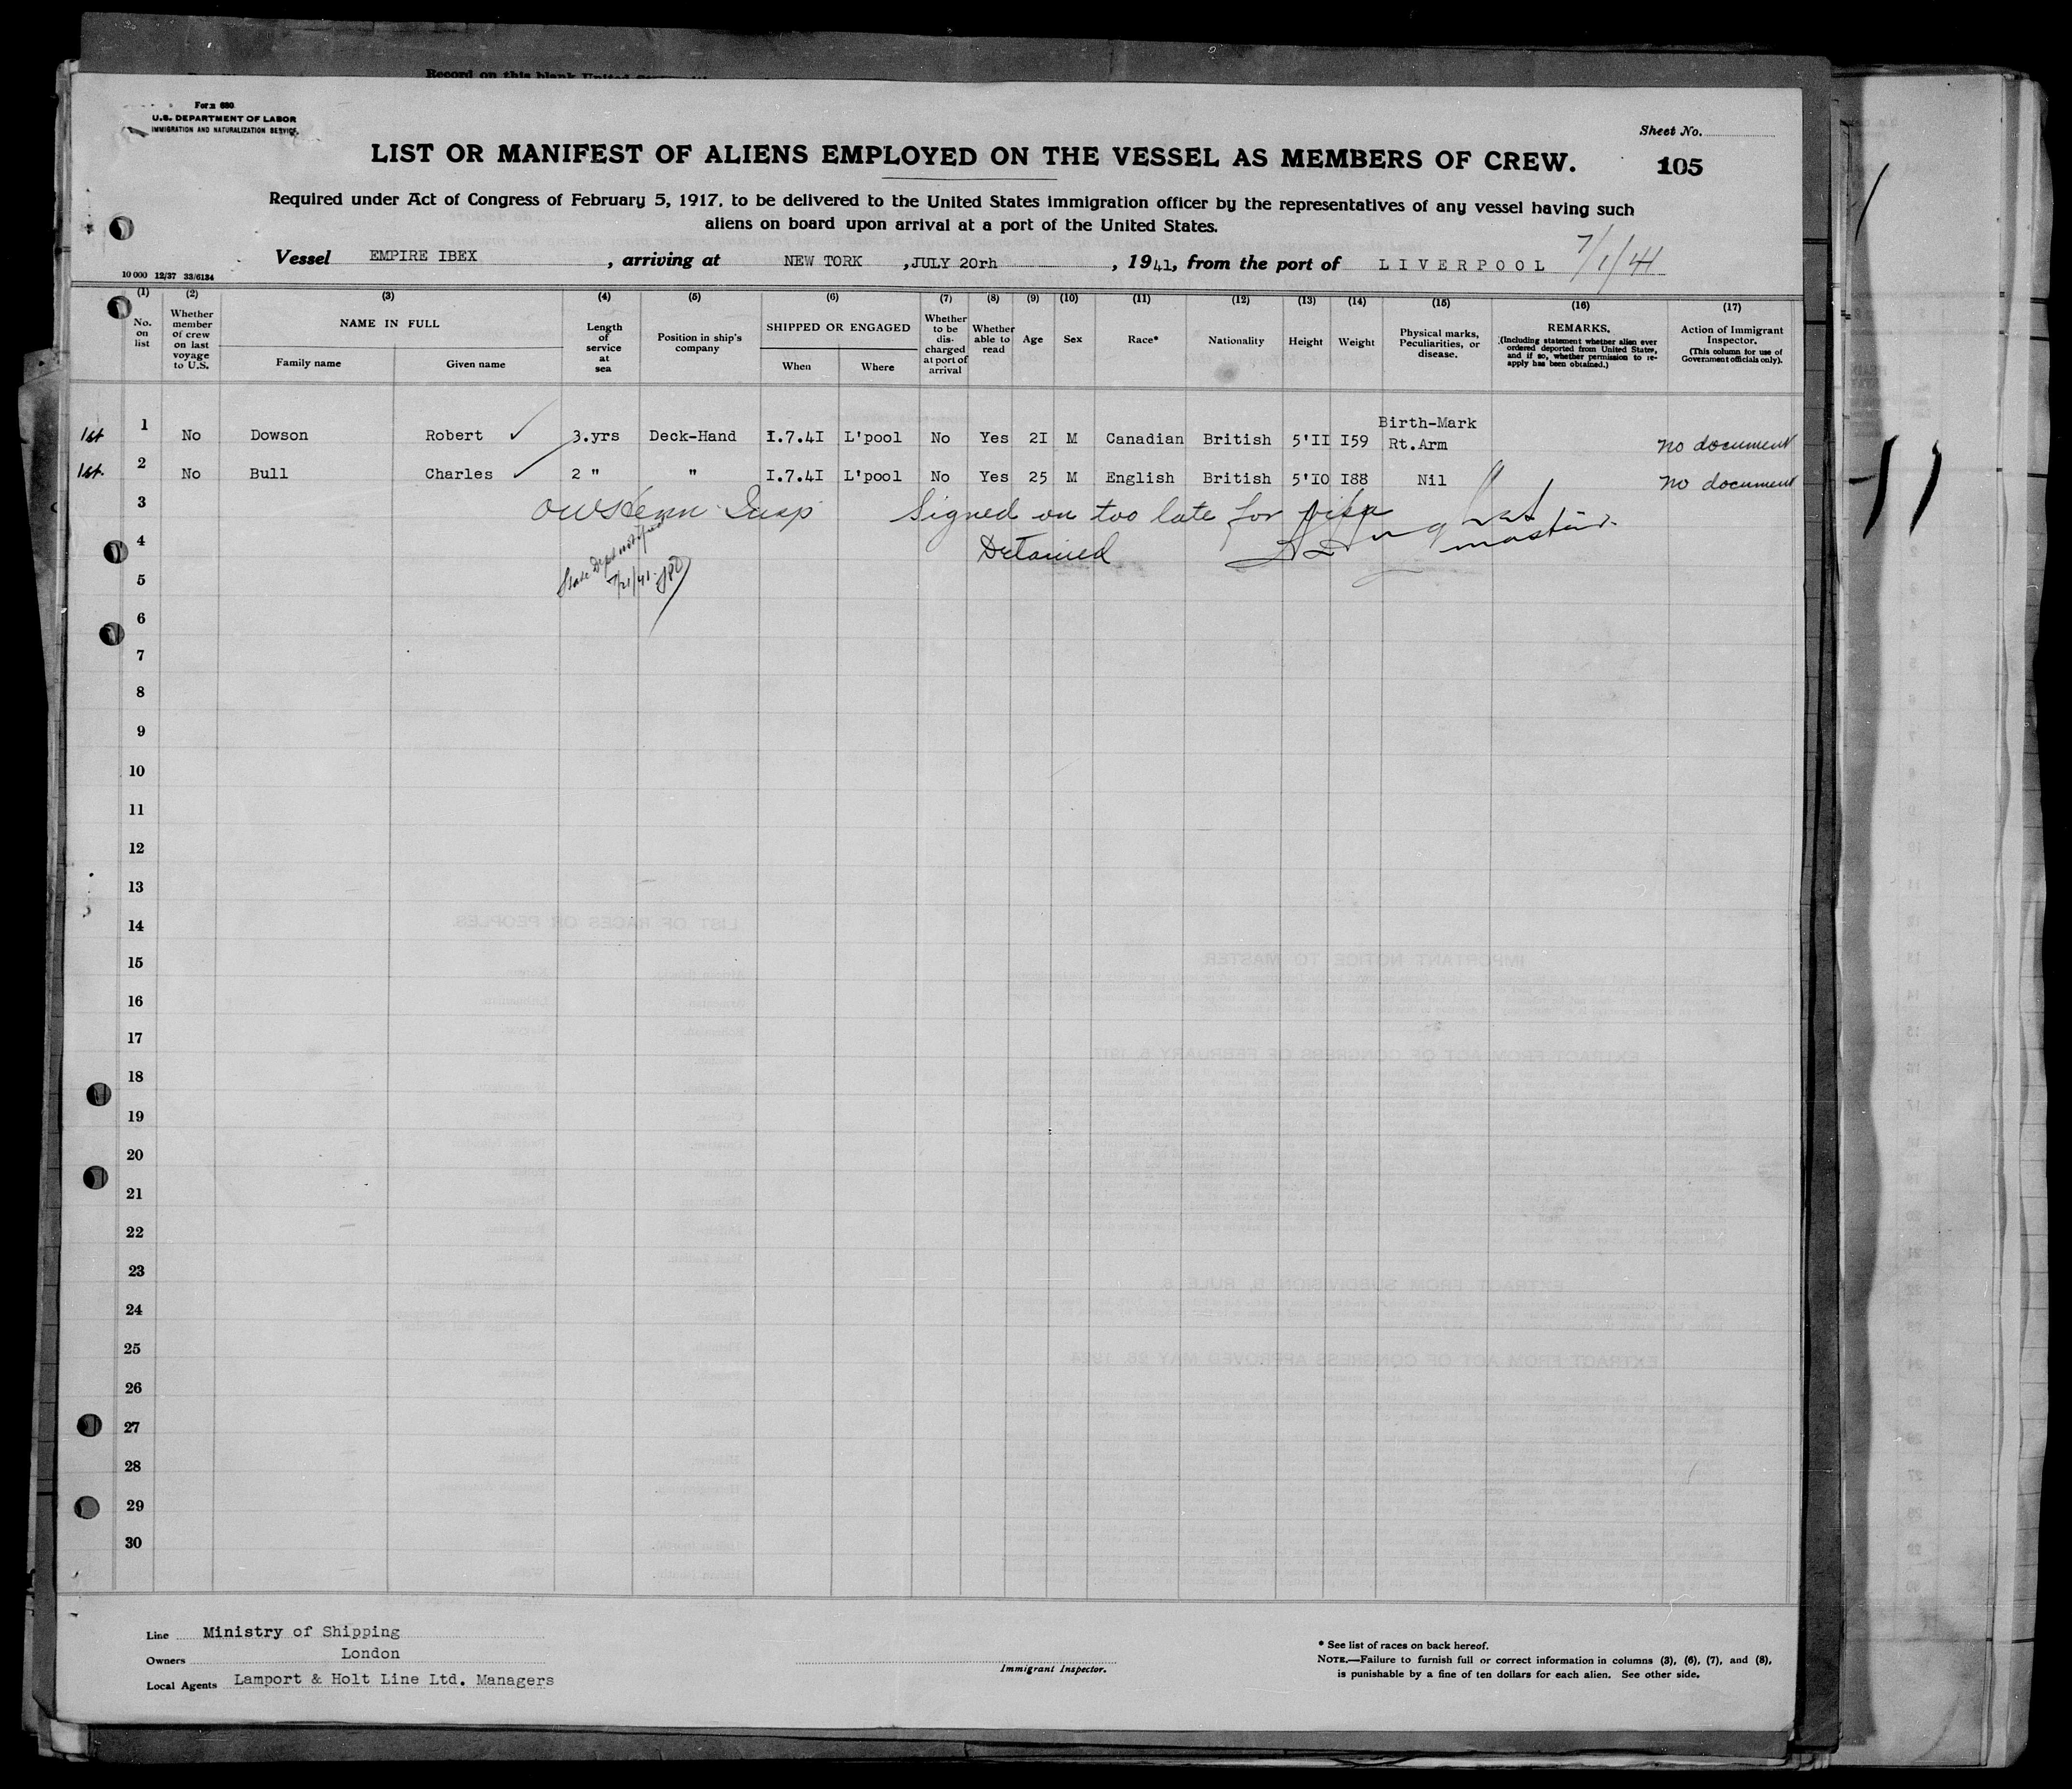 Record on this blank United
Form 680
U.S. DEPARTMENT OF LABOR
IMMIGRATION AND NATURALIZATION SERVICE
Sheet No.
105
LIST OR MANIFEST OF ALIENS EMPLOYED ON THE VESSEL AS MEMBERS OF CREW.
Required under Act of Congress of February 5, 1917, to be delivered to the United States immigration officer by the representatives of any vessel having such
aliens on board upon arrival at a port of the United States.
Vessel EMPIRE IBEX , arriving at NEW YORK , JULY 20rh , 1941, from the port of LIVERPOOL 7/1/41
10 000 12/37 33/6134
(1) (2) (3) (4) (5) (6) (7) (8) (9) (10) (11) (12) (13) (14) (15) (16) (17)
No. on list
Whether member of crew on last voyage to U.S.
NAME IN FULL
Family name Given name
Length of service at sea
Position in ship's company
SHIPPED OR ENGAGED
When Where
Whether to be discharged at port of arrival
Whether able to read
Age Sex Race* Nationality Height Weight
Physical marks, Peculiarities, or disease.
REMARKS.
(Including statement whether alien ever ordered deported from United States, and if so, whether permission to re-apply has been obtained.)
Action of Immigrant Inspector.
(This column for use of Government officials only).
1st 1 No Dowson Robert ✓ 3.yrs Deck-Hand I.7.4I L'pool No Yes 2I M Canadian British 5'II I59 Birth-Mark Rt.Arm no document
1st 2 No Bull Charles ✓ 2 " " I.7.4I L'pool No Yes 25 M English British 5'IO I88 Nil no document
3 Insp Signed on too late for visa
4 Detained master.
State Dept notified
7/21/41
5
6
7
8
9
10
11
12
13
14
15
16
17
18
19
20
21
22
23
24
25
26
27
28
29
30
Line Ministry of Shipping
Owners London
Local Agents Lamport & Holt Line Ltd. Managers
Immigrant Inspector.
* See list of races on back hereof.
NOTE.—Failure to furnish full or correct information in columns (3), (6), (7), and (8),
is punishable by a fine of ten dollars for each alien. See other side.